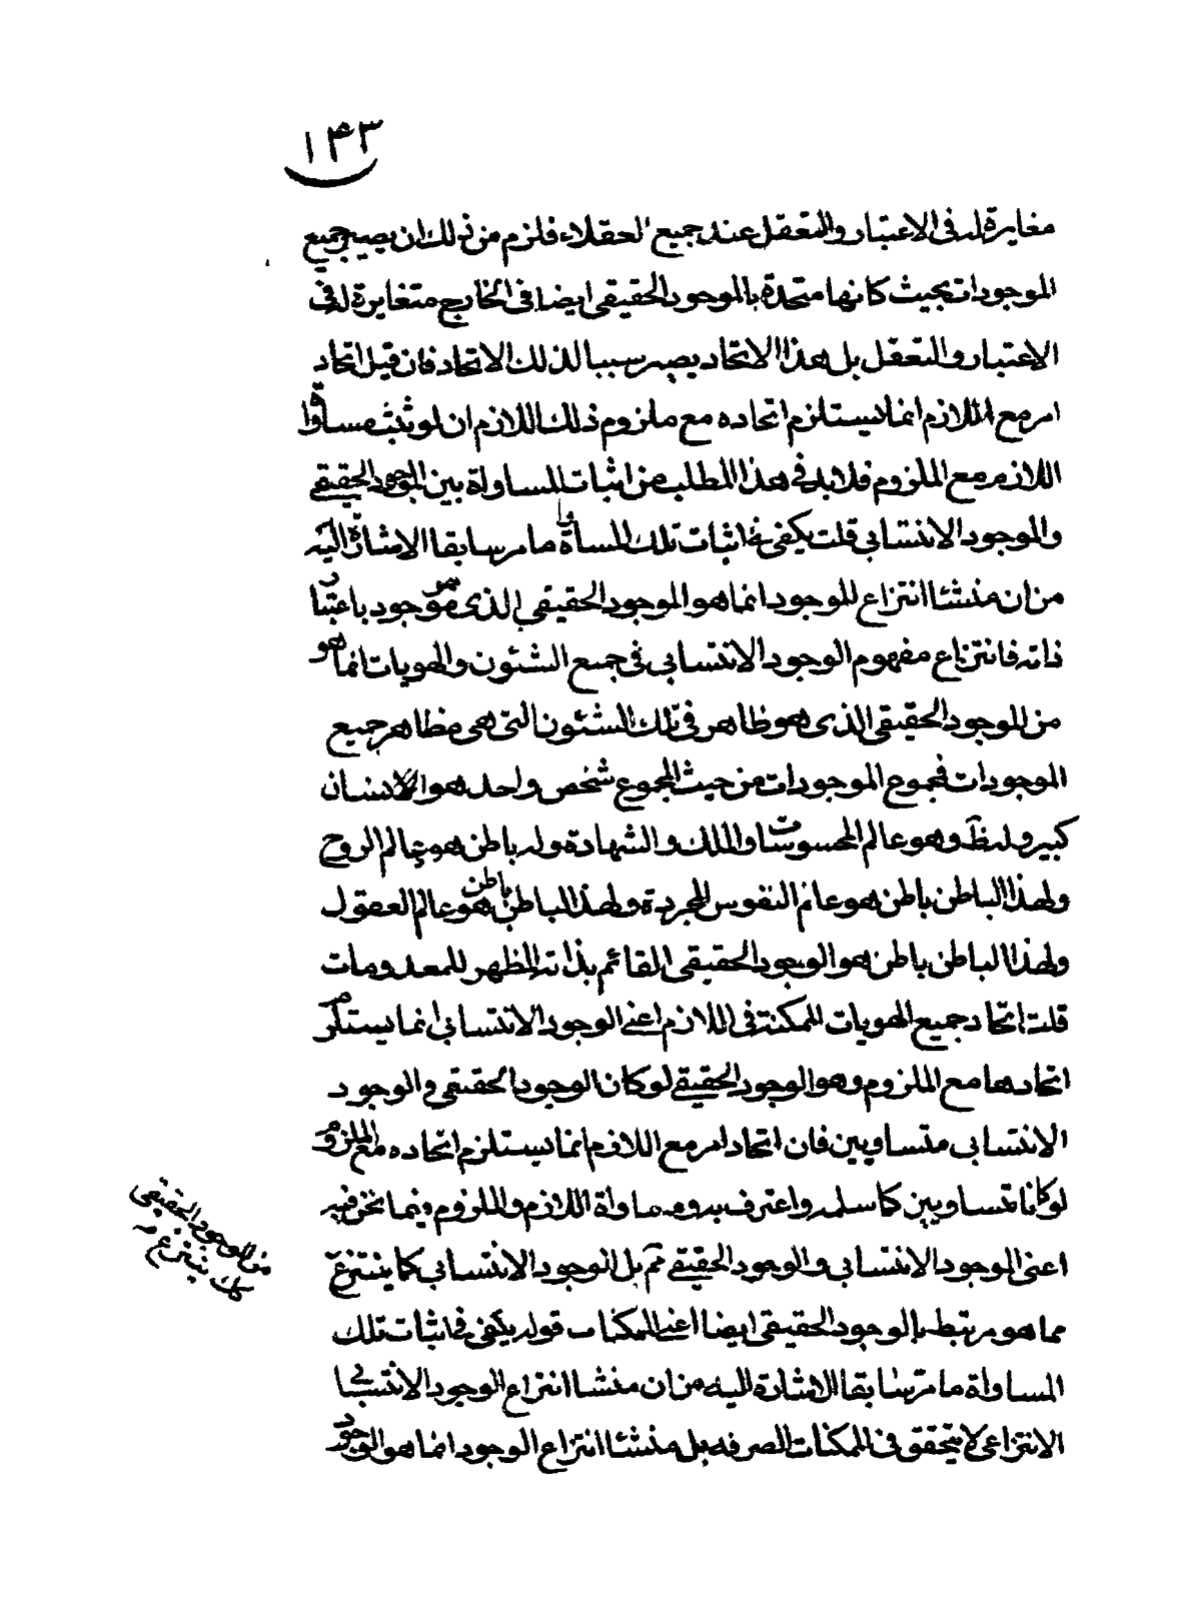 ١٤٣
مغايرة له فى الاعتبار والتعقل عند جميع العقلاء فلزم من ذلك ان يصير جميع
الموجودات بحيث كانها متحدة بالموجود الحقيقى ايضا فى الخارج متغايرة له فى
الاعتبار والتعقل بل هذا الاتحاد يصير سببا لذلك الاتحاد فان قيل اتحاد
امر مع اللازم انما يستلزم اتحاده مع ملزوم ذلك اللازم ان لو ثبت مساواة
اللازم مع الملزوم فلا بد فى هذا المطلب من اثبات المساواة بين الموجود الحقيقى
والموجود الانتسابى قلت يكفى فى اثبات تلك المساواة ما مر سابقا الاشارة اليه
من ان منشئا انتزاع الموجود انما هو الموجود الحقيقى الذى هو موجود باعتبار
ذاته فانتزاع مفهوم الوجود الانتسابى فى جميع الشئون والهويات انما هو
من الموجود الحقيقى الذى هو ظاهر فى تلك الشئون التى هى مظاهر جميع
الموجودات فمجموع الموجودات من حيث المجموع شخص واحد هو الانسان
كبير وله ظ وهو عالم المحسوسات والملك والشهادة وله باطن هو عالم الروح
ولهذا الباطن باطن هو عالم النفوس المجردة ولهذا الباطن باطن هو عالم العقول
ولهذا الباطن باطن هو الوجود الحقيقى القائم بذاته المظهر للمعدومات
قلت اتحاد جميع الهويات الممكنة فى اللازم اعنى الوجود الانتسابى انما يستلزم
اتحادها مع الملزوم وهو الوجود الحقيقى لو كان الوجود الحقيقى والوجود
الانتسابى متساويين فان اتحاد امر مع اللازم انما يستلزم اتحاده مع الملزوم
لو كانا متساويين كما سلمه واعترف به ومساواة اللازم والملزوم فيما نحن فيه
اعنى الموجود الانتسابى والوجود الحقيقى ثم بل الوجود الانتسابى كما ينتزع
مما هو مرتبط بالوجود الحقيقى ايضا اعنى الممكنات قوله يكفى فى اثبات تلك
المساواة ما مر سابقا الاشارة اليه من ان منشا انتزاع الوجود الانتسابى
الانتزاعى لا يتحقق فى الممكنات الصرفه بل منشئا انتزاع الوجود انما هو الوجود
من الوجود الحقيقى
كك ينتزع